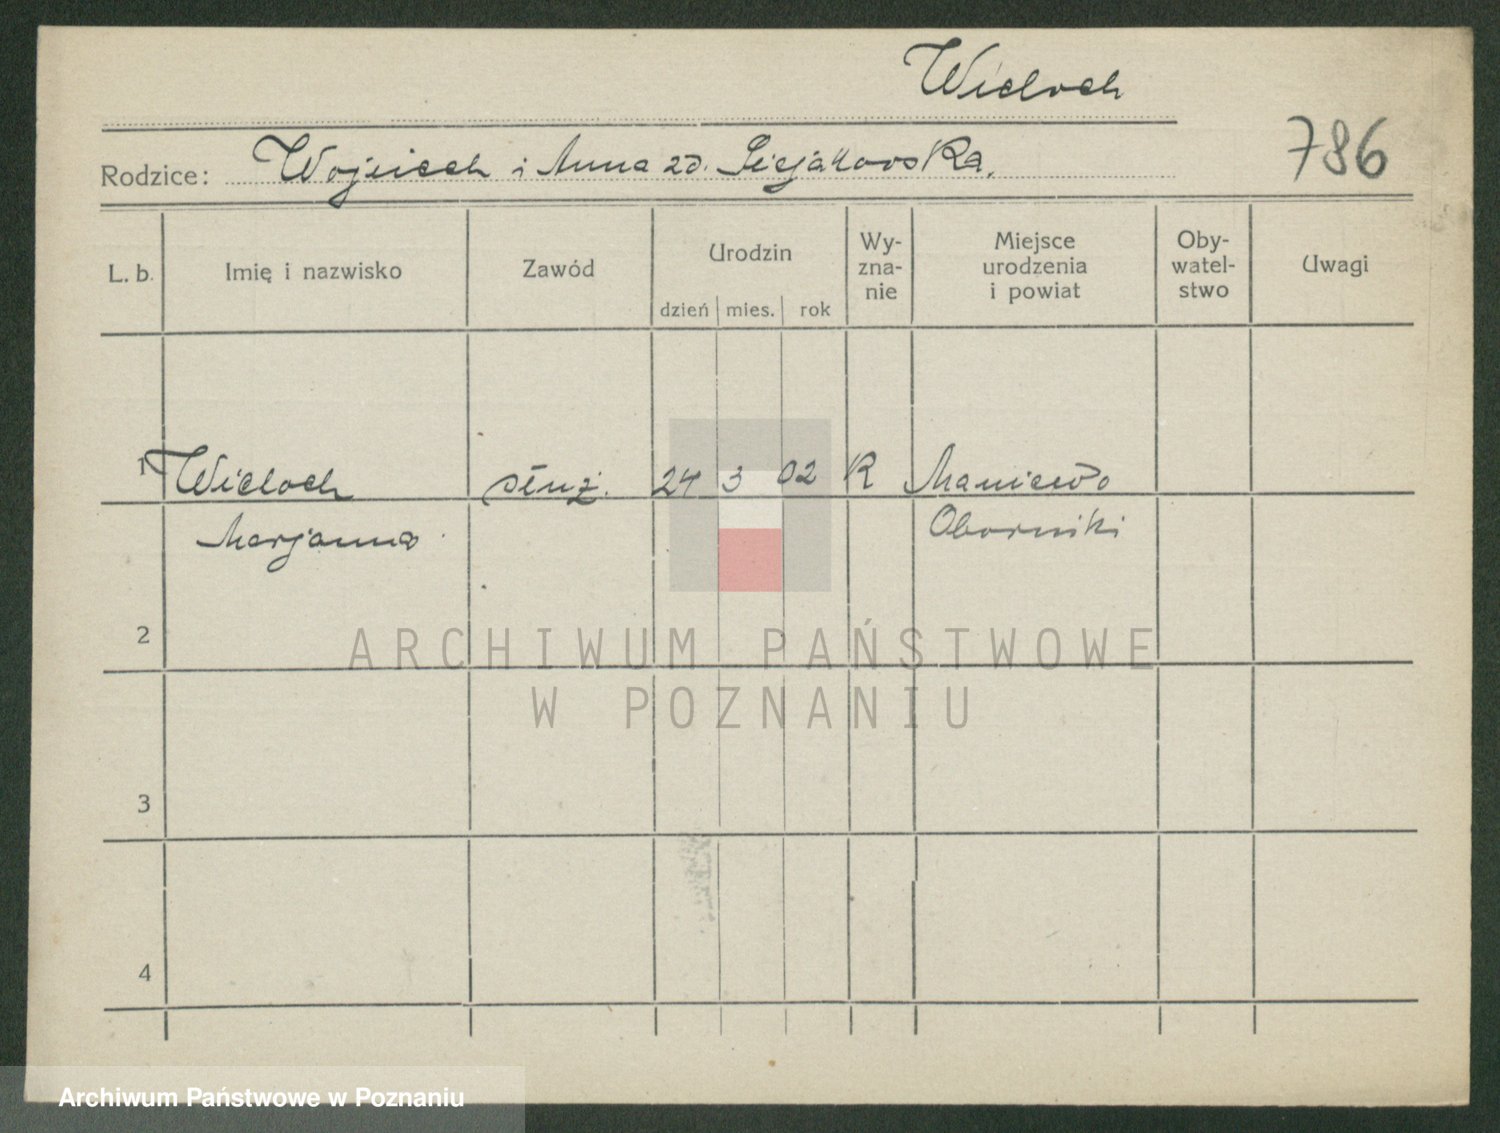 Wieloch
786
Rodzice: Wojciech i Anna zd.
L. b. Imię i nazwisko Zawód Urodzin Wy- zna- nie Miejsce urodzenia i powiat Oby- watel- stwo Uwagi
dzień mies. rok
1 Wieloch służ. 24 3 02 R Maniewo
Marjanna Oborniki
2
ARCHIWUM PAŃSTWOWE
W POZNANIU
3
4
Archiwum Państwowe w Poznaniu